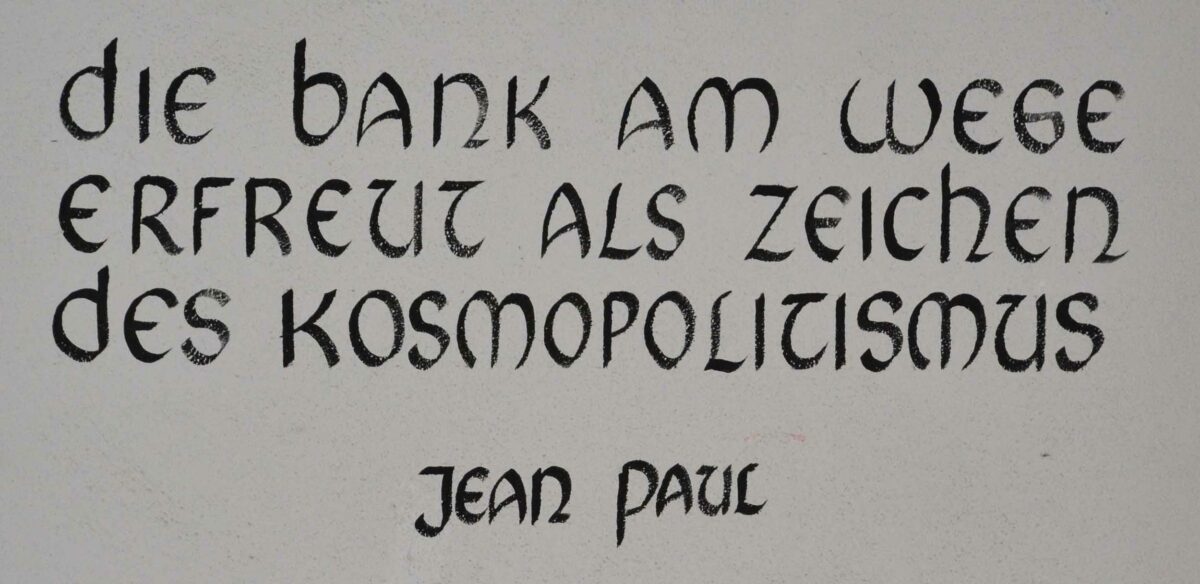 die bank am wege
erfreut als zeichen
des kosmopolitismus
Jean Paul